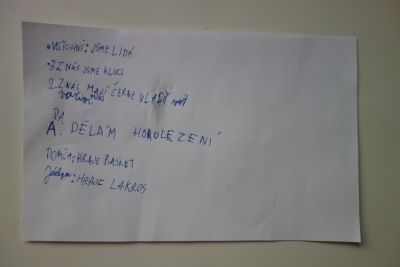 •VŠICHNI: JSME LIDÉ
•3 Z NÁS JSME KLUCI
2 Z NÁS MAJÍ ČERNÉ VLASY
DA
A. DĚLÁM HOROLEZENÍ
DOMČA: HRAJE BASKET
Jáchym: HRAJE LAKROS